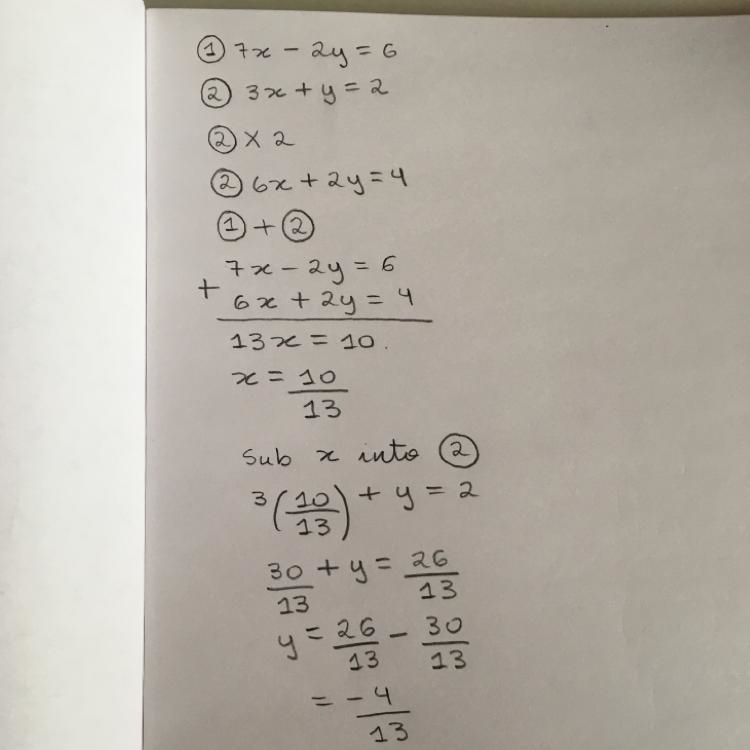 ① 7x - 2y = 6
② 3x + y = 2
② × 2
② 6x + 2y = 4
① + ②
7x - 2y = 6
+ 6x + 2y = 4
13x = 10.
x = 10/13
Sub x into ②
3(10/13) + y = 2
30/13 + y = 26/13
y = 26/13 - 30/13
= -4/13